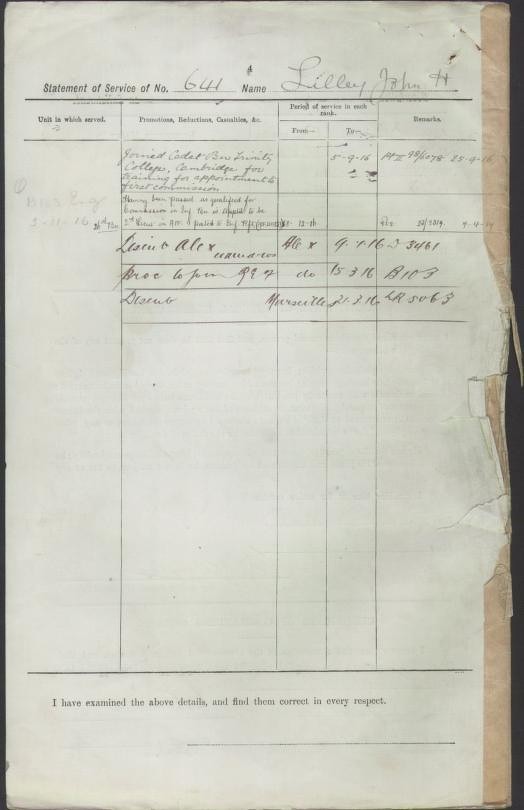 4
Statement of Service of No. 641 Name Lilley John H
Unit in which served.
Promotions, Reductions, Casualties, &c.
Period of service in each rank.
From—
To—
Remarks.
Joined Cadet Bn Trinity 5-9-16 Pt II 98/6078 25-9-16
College, Cambridge for
training for appointment to
first commission
3-11-16
Having been passed as qualified for
Commission in Inf is to be
2nd Lieut in posted to Inf
Disemb Alex Alex 9.1.16 D 3461
Proc to join do 15 3 16 B103
Disemb Marseille 21.3.16 5063
I have examined the above details, and find them correct in every respect.